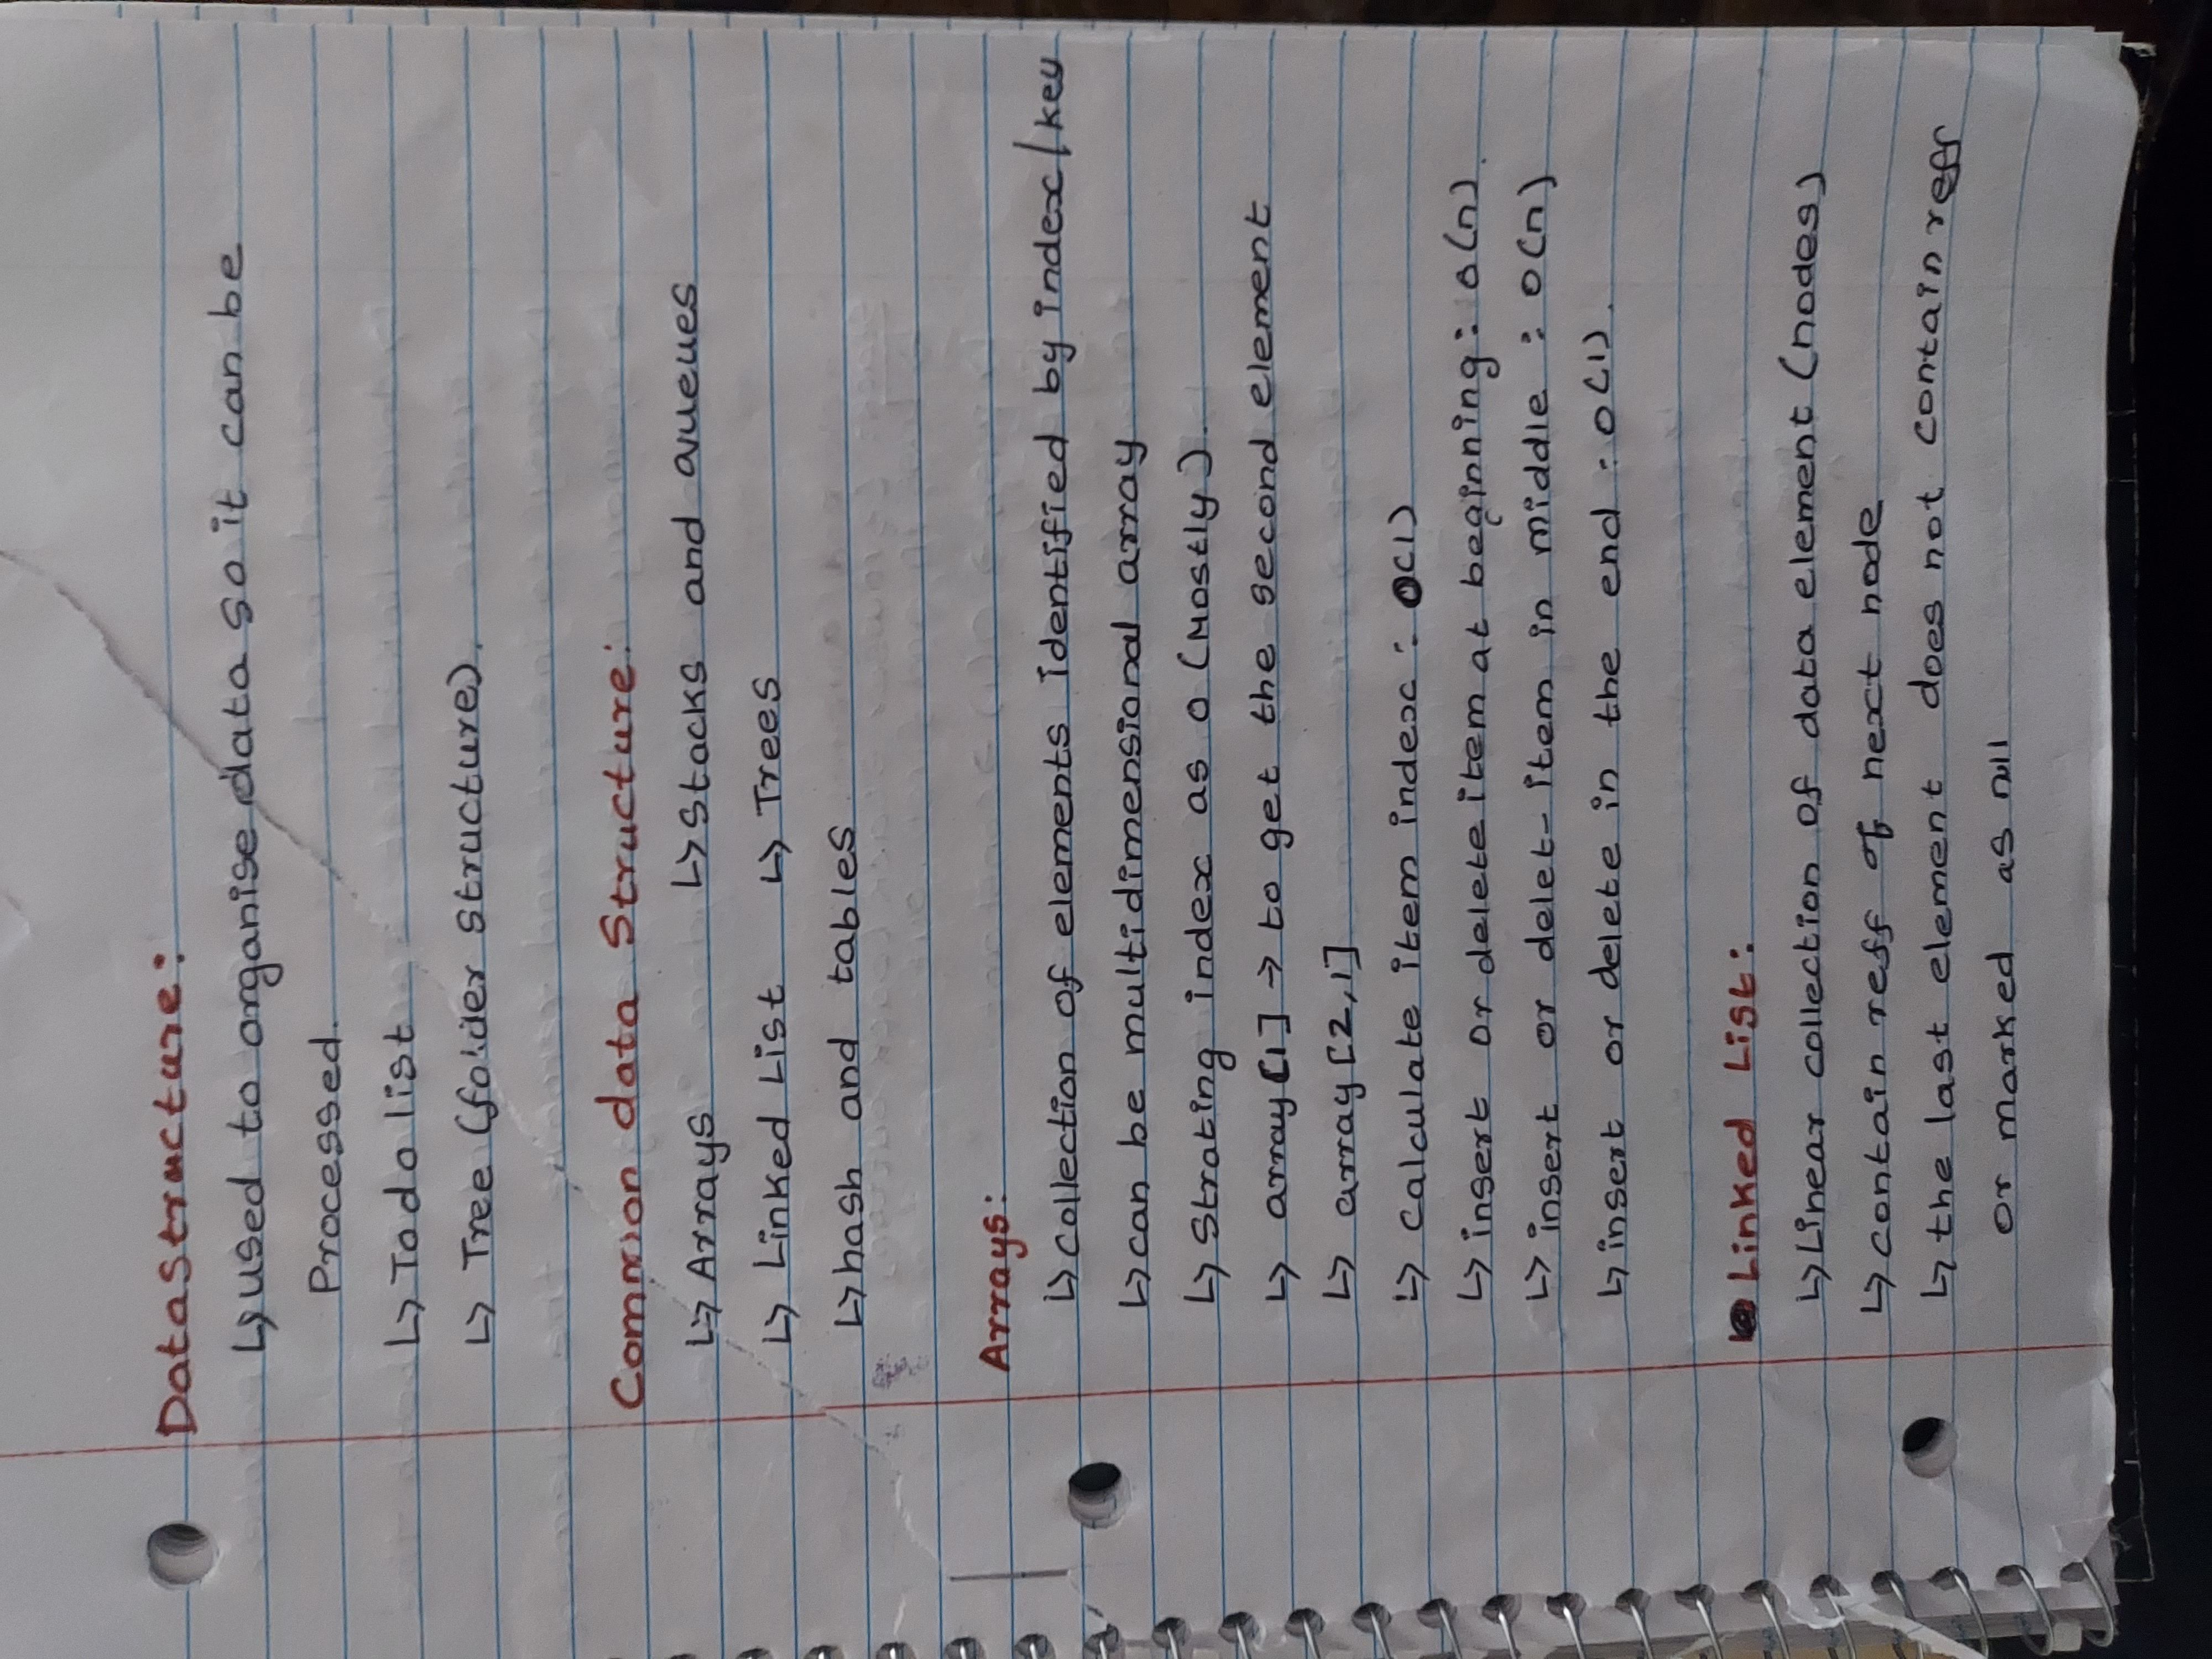 Data Structure:
↳ used to organise data so it can be
Processed.
↳ Todo list
↳ Tree (folder structure).
Common data Structure:
↳ Arrays ↳ Stacks and queues
↳ Linked List ↳ Trees
↳ hash and tables
Arrays:
↳ collection of elements identified by index/key
↳ can be multidimensional array
↳ Strating index as 0 (Mostly).
↳ array[1] → to get the second element
↳ array[2,1]
↳ calculate item index : O(1)
↳ insert or delete item at beginning : O(n).
↳ insert or delet- item in middle : O(n)
↳ insert or delete in the end : O(1).
Linked List:
↳ Linear collection of data element (nodes)
↳ contain reff of next node
↳ the last element does not contain reff
or marked as null